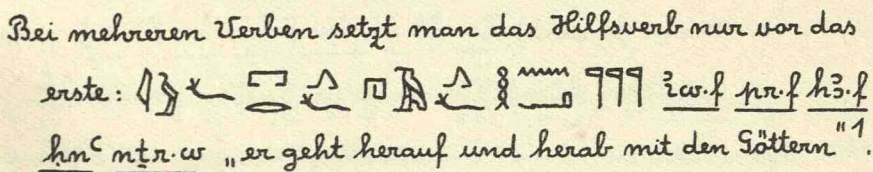 Bei mehreren Verben setzt man das Hilfsverb nur vor das
erste: 𓇋𓅱𓆑 𓉐𓂋𓂻𓆑 𓉔𓅷𓂻𓆑 𓎛𓈖𓂝 𓊹𓊹𓊹 ı͗w.f pr.f hꜣ.f
ḥnꜥ nṯr.w „er geht herauf und herab mit den Göttern"¹.